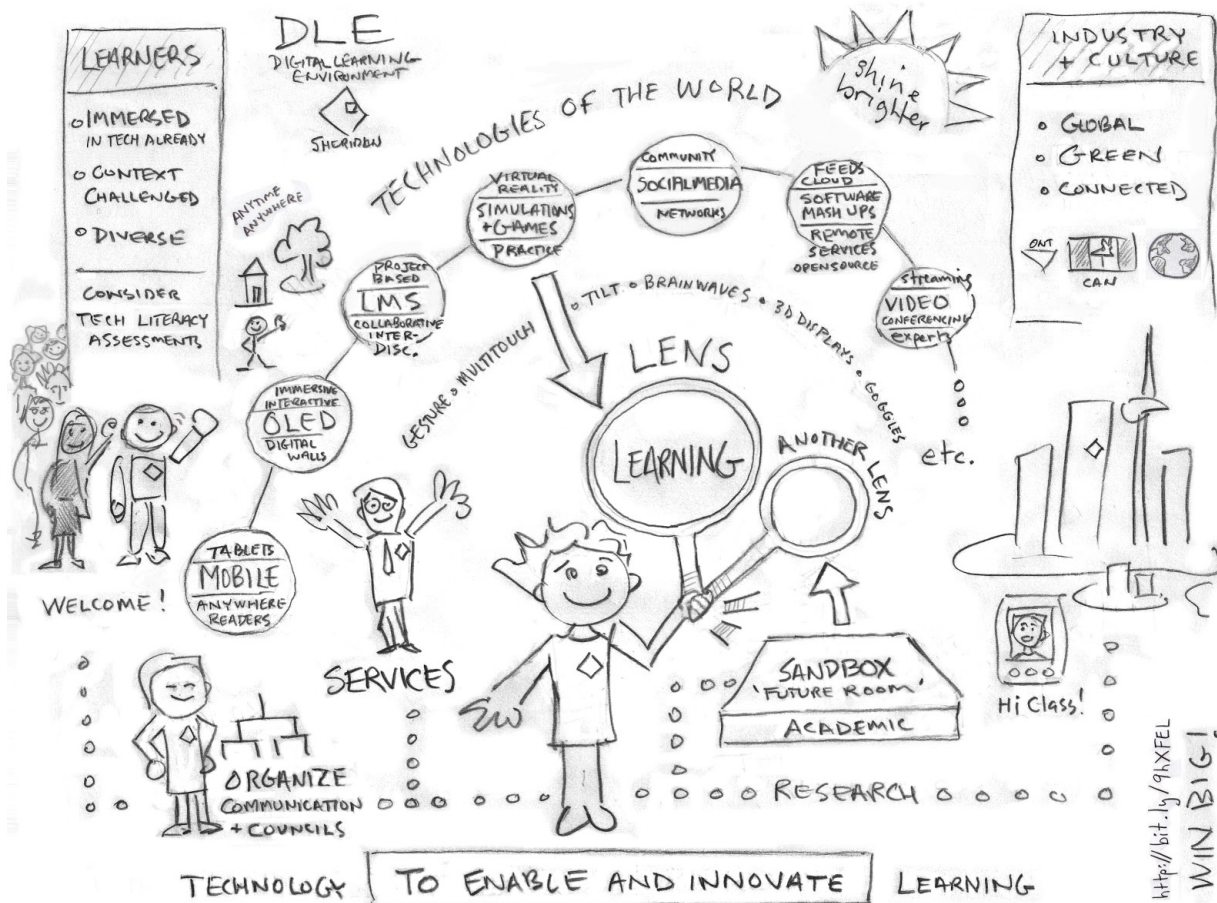 LEARNERS
IMMERSED
IN TECH ALREADY
CONTEXT
CHALLENGED
DIVERSE
CONSIDER
TECH LITERACY
ASSESSMENTS
DLE
DIGITAL LEARNING
ENVIRONMENT
SHERIDAN
ANYTIME
ANYWHERE
TECHNOLOGIES OF THE WORLD
shine
brighter
INDUSTRY
+ CULTURE
GLOBAL
GREEN
CONNECTED
ONT
CAN
TABLETS
MOBILE
ANYWHERE
READERS
IMMERSIVE
INTERACTIVE
OLED
DIGITAL
WALLS
PROJECT
BASED
LMS
COLLABORATIVE
INTER-
DISC.
VIRTUAL
REALITY
SIMULATIONS
+ GAMES
PRACTICE
COMMUNITY
SOCIAL MEDIA
NETWORKS
FEEDS
CLOUD
SOFTWARE
MASH UPS
REMOTE
SERVICES
OPEN SOURCE
streaming
VIDEO
CONFERENCING
experts
etc.
GESTURE • MULTITOUCH • TILT • BRAINWAVES • 3D DISPLAYS • GOGGLES
LENS
LEARNING
ANOTHER LENS
WELCOME!
SERVICES
SANDBOX
'FUTURE ROOM'
ACADEMIC
Hi Class!
ORGANIZE
COMMUNICATION
+ COUNCILS
RESEARCH
TECHNOLOGY TO ENABLE AND INNOVATE LEARNING
http://bit.ly/9hXFEL
WIN BIG!